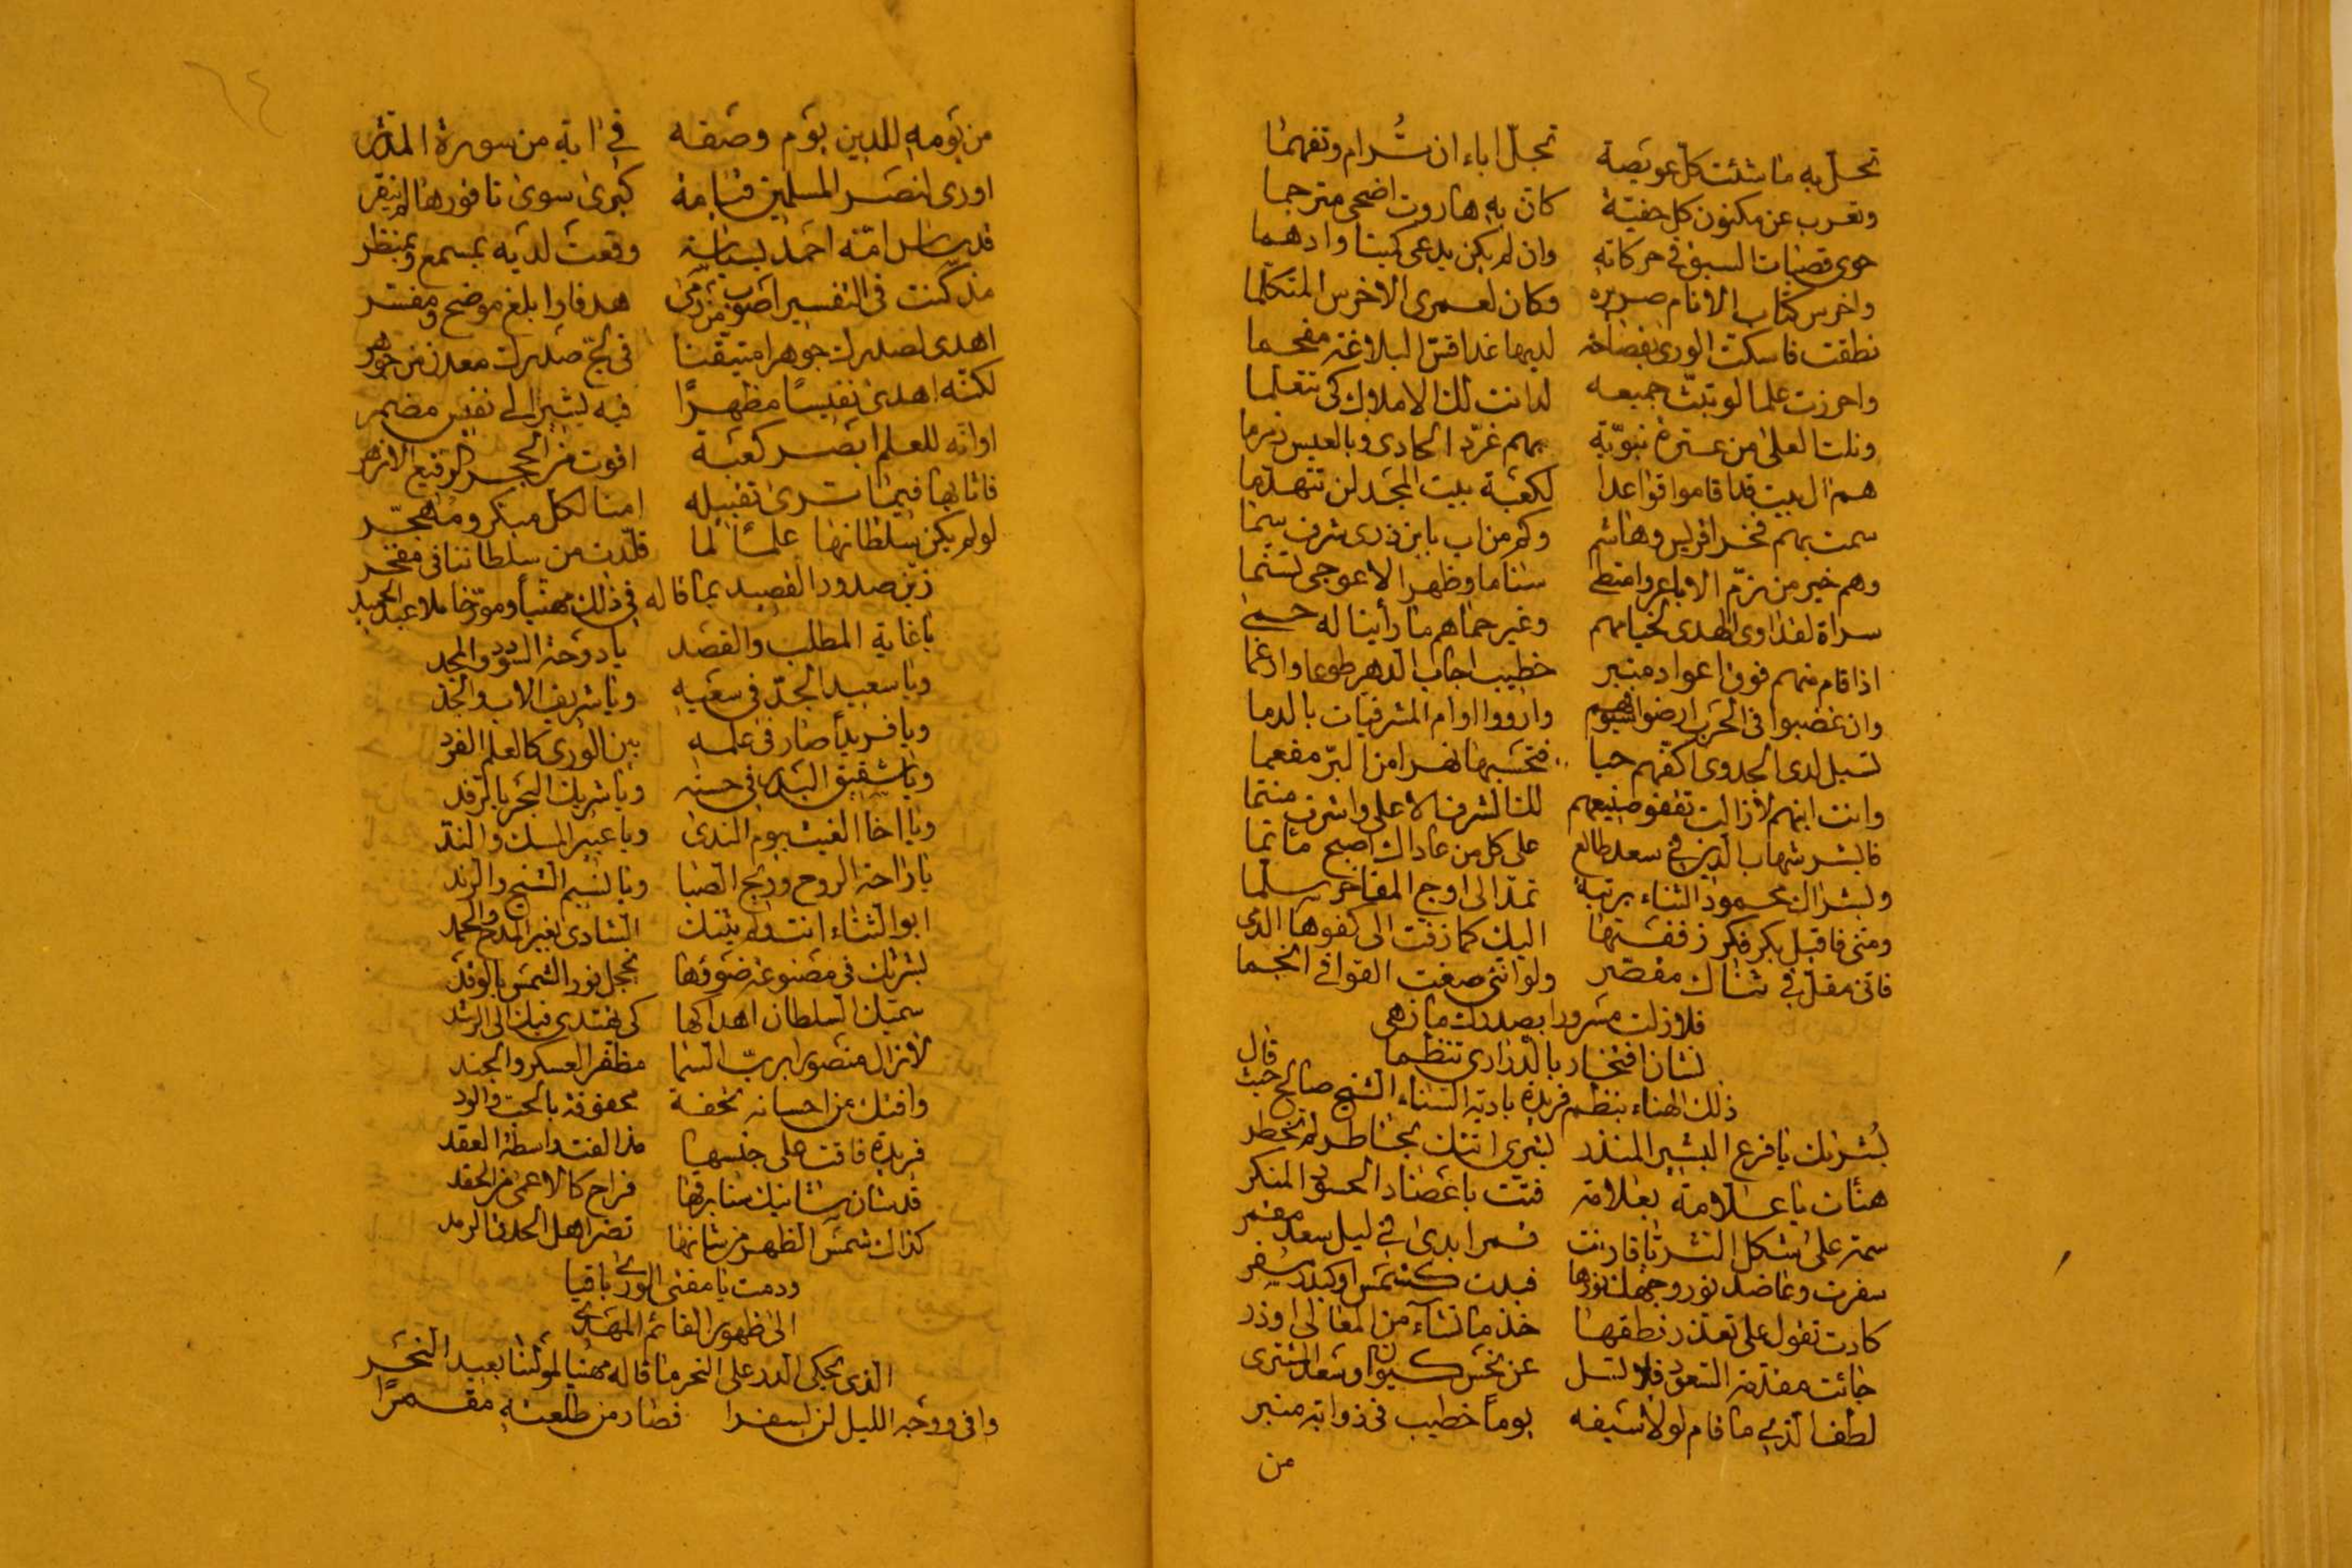 تحل به ما شئت كل عويصة تجل اباء ان تُرام وتفهما
وتعرب عن مكنون كل خفية كان به هاروت اضحى مترجما
حوى قصبات السبق في حركاته وان لم يكن يدعى كميتا وادهما
واخرس كتاب الانام صريره وكان لعمري الاخرس المتكلما
نطقت فاسكت الورى بفصاحة لديها غدا قس البلاغة مفحما
واحرزت علما لو تبث جميعه لدانت لك الاملاك كي تتعلما
ونلت العلى من عترة نبوية بهم غرّد الحادي وبالعيس زمزما
هم ال بيت قد اقاموا قواعدا لكعبة بيت المجد لن تتهدما
سمت بهم فخرا قريش وهاشم وكم من اب بابن ذرى شرف سما
وهم خير من زمّ الاباعر وامتطى سناما وظهر الاعوجي تسنما
سراة لقد اوى الهدى لخيامهم وغير حماهم ما رأينا له حمى
اذا قام منهم فوق اعواد منبر خطيب اجاب الدهر طوعا وارغما
وان غضبوا في الحرب ارضوا سيوفهم وارووا اوام المشرفيات بالدما
تسيل لدى الجدوى اكفهم حيا فتحسبها نهرا من البرّ مفعما
وانت ابنهم لا زالت تقفو صنيعهم لك الشرف الاعلى واشرف منتما
فابشر شهاب الدين في سعد طالع على كل من عاداك اصبح ماتما
وبشراك محمود الثناء برتبة تمد الى اوج المفاخر سلما
ومني فاقبل بكر فكر زففتها اليك كما زفت الى كفوها الدمى
فاني مقل في ثناك مقصر ولو انني صغت القوافي انجما
فلا زلت مسرورا بصدرك ما زهى
نشان افتخار بالدراري تنظما
ذلك الهناء بنظم فريدة بادية السناء الشيخ صالح حيث قال
بُشرىك يا فرع البشير المنذر بشرى اتتك بخاطر لم تخطر
هنأت يا علامة بعلامة فتّت باعضاد الحسود المنكر
سمة على شكل النشر يا قارنت قمرا بدى في ليل سعد مقمر
سفرت وعاضد نور وجهك نورها فبدت كشمس او كبدر مسفر
كادت تقول على تعذر نطقها خذ ما تشاء من المعالي او ذر
جائت مقدمة السعود فلا تسل عن نحس كيوان وسعد المشتري
لطف الذي ما قام لولا سيفه يوماً خطيب في ذوابة منبر
من
من يومه للدين يوم وصفه في اية من سورة المدثر
اورى لنصر المسلمين قسامة كبرى سوى ناقورها لم ينقر
قد ساس امة احمد بسياسة وقعت لديه بمسمع وبمنظر
مذ كنت في التفسير اصوب من رمى هدفا وابلغ موضح ومفسر
اهدى لصدرك جوهرا متيقنا في لج صدرك معدن من جوهر
لكنه اهدى نفيسًا مظهرًا فيه يشير الى نفيس مضمر
او انه للعلم ابصر كعبة اقوت من الحجر الرفيع الازهر
فاثابها فيما ترى تقبيله امنا لكل مبكر ومهجّر
لو لم يكن سلطانها علماً لما قلّدت من سلطاننا في مفخر
زيّن صدور القصيد بما قاله في ذلك مهنياً ومورّخا ملا عبد الحميد
يا غاية المطلب والقصد يا دوحة السودد والمجد
ويا سعيد الجدّ في سعيه ويا شريف الاب والجد
ويا فريداً صار في علمه بين الورى كالعلم الفرد
ويا شقيق البدر في حسنه ويا شريك البحر بالرفد
ويا اخا الغيث بيوم الندى ويا عبير المسك والند
يا راحة الروح وريح الصبا ويا نسيم الشيح والرند
ابو الثناء انت ولم يثنك الشادي بغير المدح والحمد
بشرىك في مصنوعة ضوؤها يخجل نور الشمس بالوقد
سميك السلطان اهداكها كي يقتدى فيك الى الرشد
لا زال منصورا بربّ السما مظفر العسكر والجند
وافتك عن احسانه تحفة محفوفة بالحب والود
فريدة فاقت على جنسها مذ الفت واسطة العقد
قد شان شانيك سنا برقها فراح كالاعمى من الحقد
كذاك شمس الظهر من شانها تضر اهل الحدق الرمد
ودمت يا مفتي الورى باقيا
الى ظهور القائم المهدي
الذي يحكي الدر على النحر ما قاله مهنيا لمولنا بعيد النحر
وافى ووجه الليل لن اسفرا فصار من طلعته مقمرًا